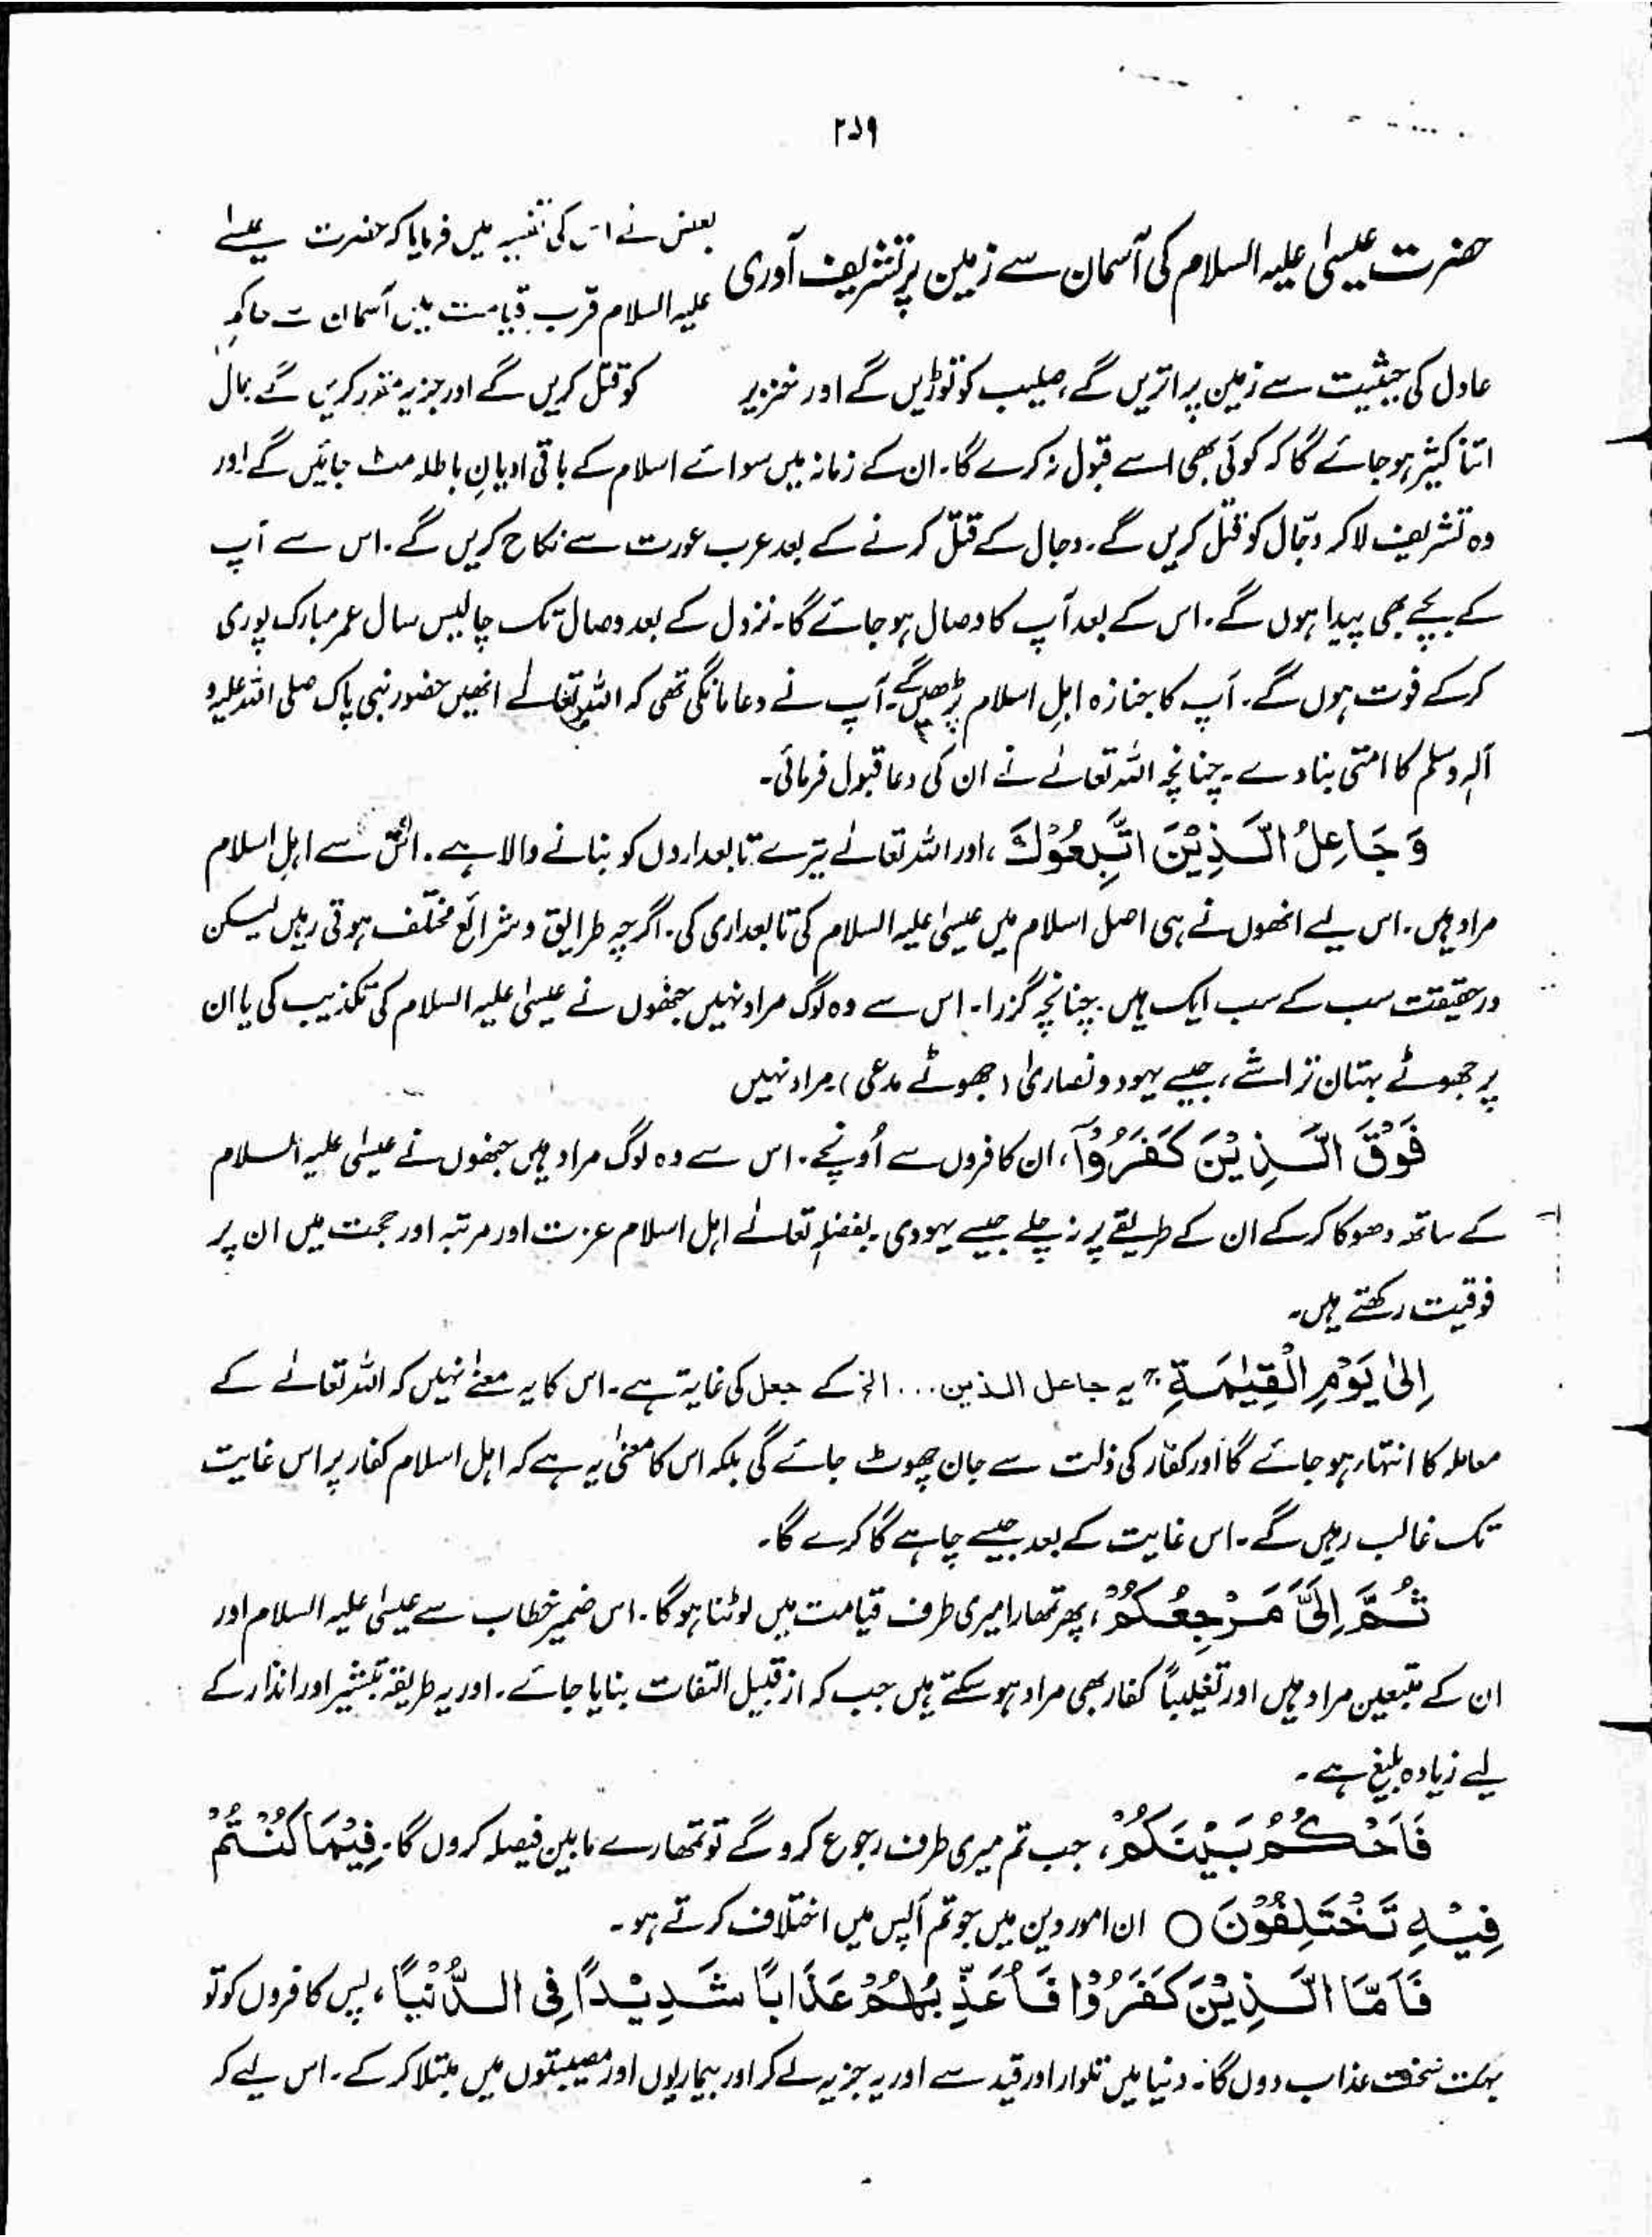 ۲۵۹
حضرت عیسٰی علیہ السلام کی آسمان سے زمین پر تشریف آوری
بعض نے اس کی تفسیر میں فرمایا کہ حضرت عیسے
علیہ السلام قرب قیامت میں آسمان سے حاکم
عادل کی حیثیت سے زمین پر اتریں گے، صلیب کو توڑیں گے اور خنزیر کو قتل کریں گے اور جزیہ مقرر کریں گے۔ مال
اتنا کثیر ہو جائے گا کہ کوئی بھی اسے قبول نہ کرے گا۔ ان کے زمانہ میں سوائے اسلام کے باقی ادیانِ باطلہ مٹ جائیں گے اور
وہ تشریف لا کر دجّال کو قتل کریں گے۔ دجال کے قتل کرنے کے بعد عرب عورت سے نکاح کریں گے۔ اس سے آپ
کے بچے بھی پیدا ہوں گے۔ اس کے بعد آپ کا وصال ہو جائے گا۔ نزول کے بعد وصال تک چالیس سال عمر مبارک پوری
کرکے فوت ہوں گے۔ آپ کا جنازہ اہلِ اسلام پڑھیں گے۔ آپ نے دعا مانگی تھی کہ اللہ تعالےٰ انھیں حضور نبی پاک صلی اللہ علیہ و
آلہٖ وسلم کا امتی بنا دے۔ چنانچہ اللہ تعالےٰ نے ان کی دعا قبول فرمائی۔
وَ جَاعِلُ الَّذِیْنَ اتَّبِعُوْكَ، اور اللہ تعالےٰ تیرے تابعداروں کو بنانے والا ہے۔ اس سے اہلِ اسلام
مراد ہیں۔ اس لیے انھوں نے ہی اصل اسلام میں عیسیٰ علیہ السلام کی تابعداری کی۔ اگرچہ طرایق و شرائع مختلف ہوتی رہیں لیکن
درحقیقت سب کے سب ایک ہیں۔ چنانچہ گزرا۔ اس سے وہ لوگ مراد نہیں جنھوں نے عیسیٰ علیہ السلام کی تکذیب کی یا ان
پر جھوٹے بہتان تراشے، جیسے یہود و نصاریٰ (جھوٹے مدعی) مراد نہیں
فَوْقَ الَّذِیْنَ كَفَرُوْٓا، ان کافروں سے اُونچے۔ اس سے وہ لوگ مراد ہیں جنھوں نے عیسٰی علیہ السلام
کے ساتھ دھوکا کرکے ان کے طریقے پر نہ چلے جیسے یہودی۔ بفضلہٖ تعالےٰ اہل اسلام عزت اور مرتبہ اور حجت میں ان پر
فوقیت رکھتے ہیں۔
اِلیٰ یَوْمِ الْقِیٰمَةِ ج یہ جاعل الذین... الخ کے جعل کی غایۃ ہے۔ اس کا یہ معنےٰ نہیں کہ اللہ تعالےٰ کے
معاملہ کا انتہاء ہو جائے گا اور کفار کی ذلت سے جان چھوٹ جائے گی بلکہ اس کا معنیٰ یہ ہے کہ اہل اسلام کفار پر اس غایت
تک غالب رہیں گے۔ اس غایت کے بعد جیسے چاہے گا کرے گا۔
ثُمَّ اِلَیَّ مَرْجِعُكُمْ، پھر تمھارا میری طرف قیامت میں لوٹنا ہوگا۔ اس ضمیر خطاب سے عیسٰی علیہ السلام اور
ان کے متبعین مراد ہیں اور تغلیباً کفار بھی مراد ہو سکتے ہیں جب کہ از قبیل التفات بنایا جائے۔ اور یہ طریقہ تبشیر اور انذار کے
لیے زیادہ بلیغ ہے۔
فَاَحْكُمُ بَیْنَكُمْ، جب تم میری طرف رجوع کرو گے تو تمھارے مابین فیصلہ کروں گا۔ فِیْمَا كُنْتُمْ
فِیْهِ تَخْتَلِفُوْنَ ○ ان امور دین میں جو تم آپس میں اختلاف کرتے ہو۔
فَاَمَّا الَّذِیْنَ كَفَرُوْا فَاُعَذِّبُهُمْ عَذَابًا شَدِیْدًا فِی الدُّنْیَا، پس کافروں کو تو
بہت سخت عذاب دوں گا۔ دنیا میں تلوار اور قید سے اور یہ جزیہ لے کر اور بیماریوں اور مصیبتوں میں مبتلا کر کے۔ اس لیے کہ